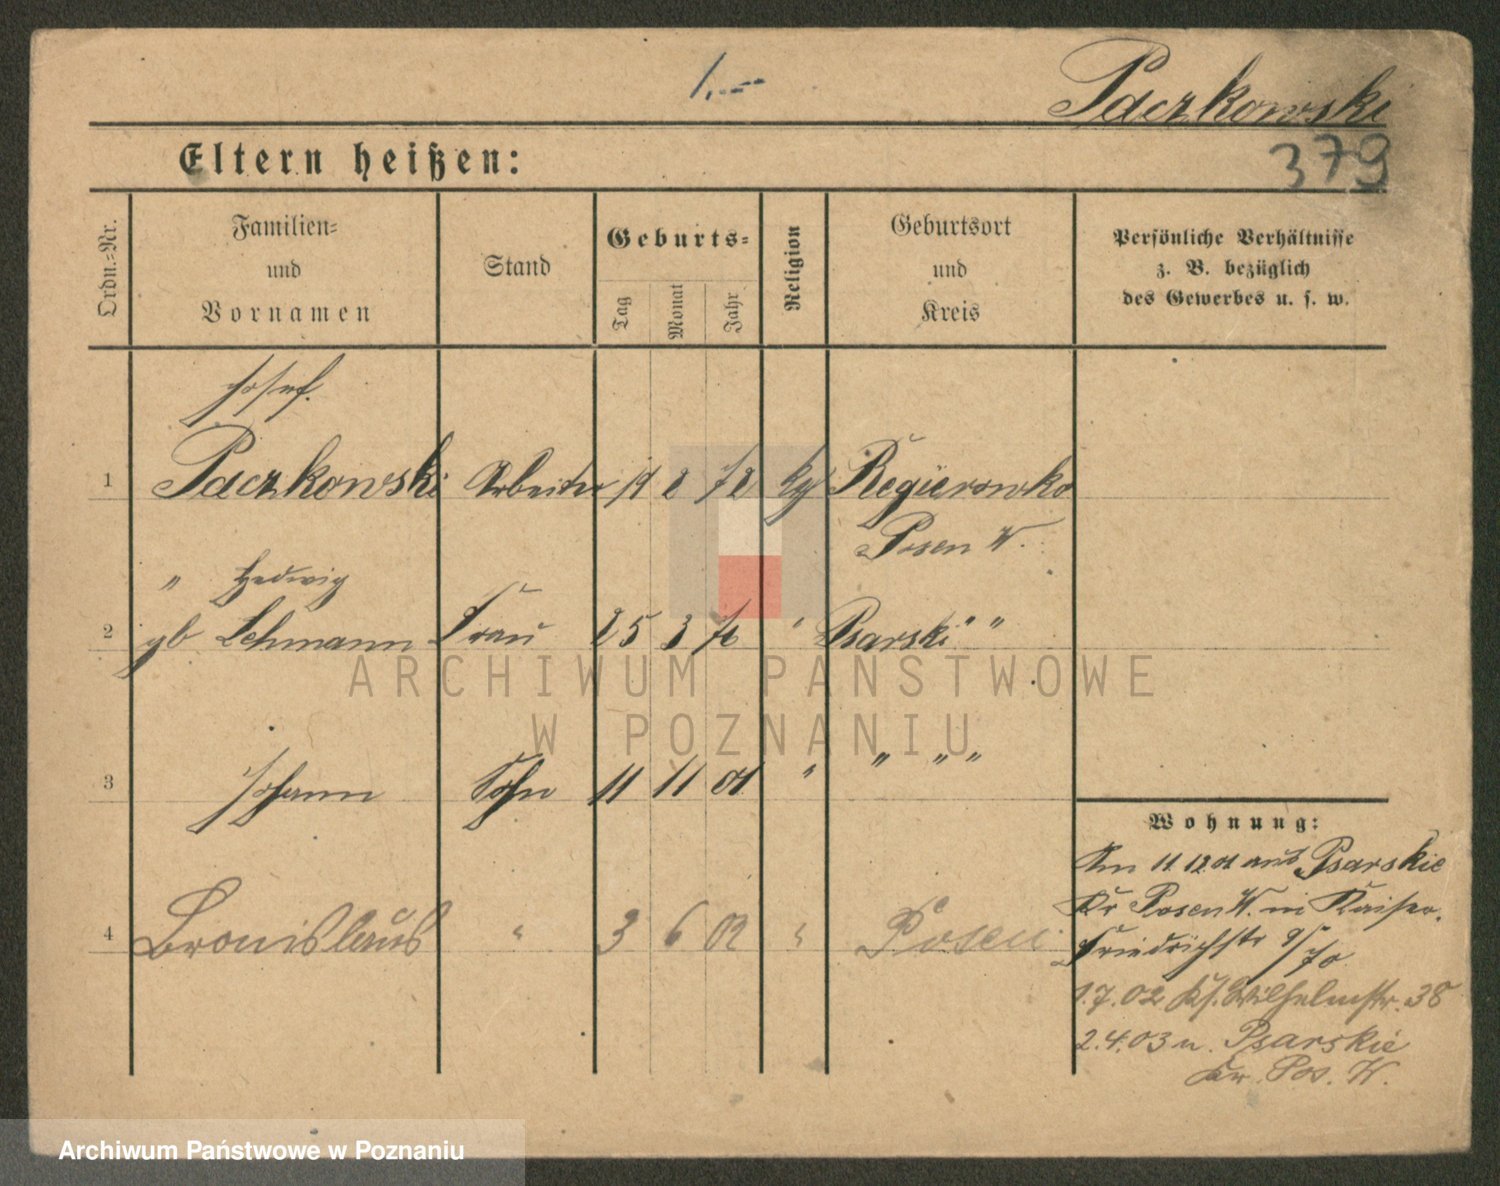 1.--
Paczkowski
379
Eltern heißen:
Ordn.-Nr.
Familien-
und
Vornamen
Stand
Geburts-
Tag
Monat
Jahr
Religion
Geburtsort
und
Kreis
Persönliche Verhältnisse
z. B. bezüglich
des Gewerbes u. s. w.
Josef.
1 Paczkowski Arbeiter 19 2 72 Regierowko
Posen W.
" Hedwig
2 gb Lehmann Frau 25 3 " Psarski " "
3 Johann Sohn 11 11 01 " " " "
4 Bronislaus " 3 6 02 " Posen
Wohnung:
Am 11 12 01 aus Psarskie
Kr Posen W. in Kaiser
Friedrichstr 9/70
1.7.02 Wilhelmstr. 38
2.4.03 n. Psarskie
Kr. Pos. W.
ARCHIWUM PAŃSTWOWE
W POZNANIU
Archiwum Państwowe w Poznaniu